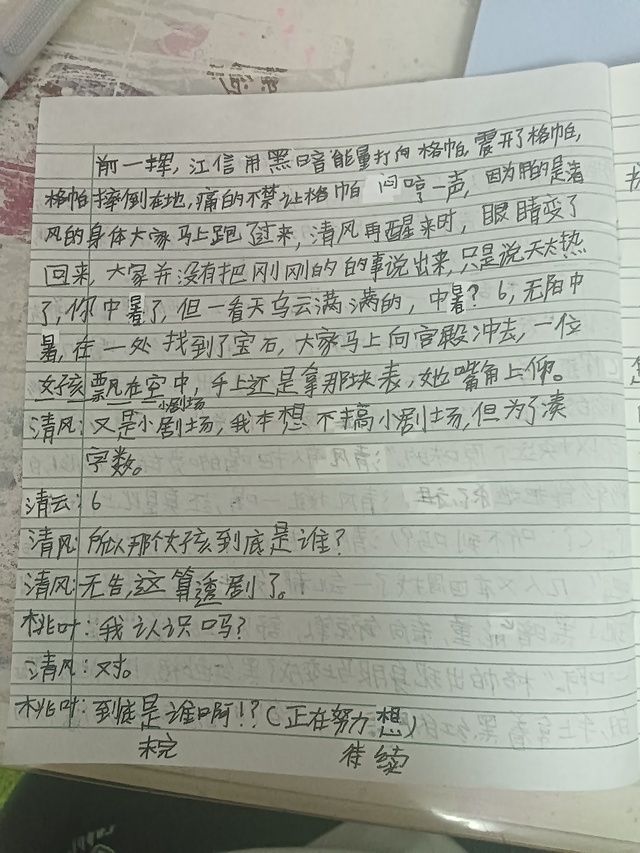 前一挥,江信用黑暗能量打向格帕,震开了格帕,
格帕摔倒在地,痛的不禁让格帕闷哼一声,因为用的是清
风的身体大家马上跑了过来,清风再醒来时,眼睛变了
回来,大家并没有把刚刚的的事说出来,只是说天太热
了,你中暑了,但一看天乌云满满的,中暑?6,无阳中
暑,在一处找到了宝石,大家马上向宫殿冲去,一位
女子孩飘在空中,手上还是拿那块表,她嘴角上仰。
小剧场
清风:又是小剧场,我本想不搞小剧场,但为了凑
字数。
清云:6
清风:所以那个女孩到底是谁?
清风:无告,这算透剧了。
桃叶:我认识吗?
清风:对。
桃叶:到底是谁啊!?(正在努力想)
未完 待续